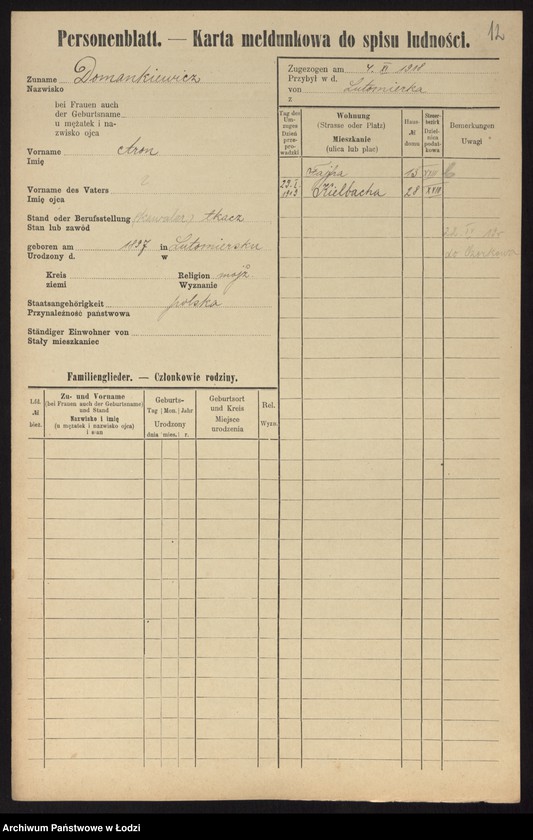 12
Personenblatt. — Karta meldunkowa do spisu ludności.
Zuname Domankiewicz
Nazwisko
bei Frauen auch
der Geburtsname
u mężatek i na-
zwisko ojca
Vorname Aron
Imię
Vorname des Vaters
Imię ojca
Stand oder Berufsstellung (kawaler) tkacz
Stan lub zawód
geboren am 1897 in Lutomiersku
Urodzony d. w
Kreis Religion mojż.
ziemi Wyznanie
Staatsangehörigkeit polska
Przynależność państwowa
Ständiger Einwohner von
Stały mieszkaniec
Zugezogen am 4. III 1918
Przybył w d.
von Lutomierka
z
Tag des Um-zuges Dzień prze-prowadzki
Wohnung
(Strasse oder Platz)
Mieszkanie
(ulica lub plac)
Haus- № domu
Steuer-bezirk Dziel-nica podat-kowa
Bemerkungen
Uwagi
Fajfra 15 XVII
23. I Kielbacha 28 XVII
do Ozorkowa
Familienglieder. — Członkowie rodziny.
Lfd. № bież.
Zu- und Vorname
(bei Frauen auch der Geburtsname)
und Stand
Nazwisko i imię
(u mężatek i nazwisko ojca)
i stan
Geburts-
Tag Mon. Jahr
Urodzony
dnia mies. r.
Geburtsort
und Kreis
Miejsce
urodzenia
Rel.
Wyzn.
Archiwum Państwowe w Łodzi